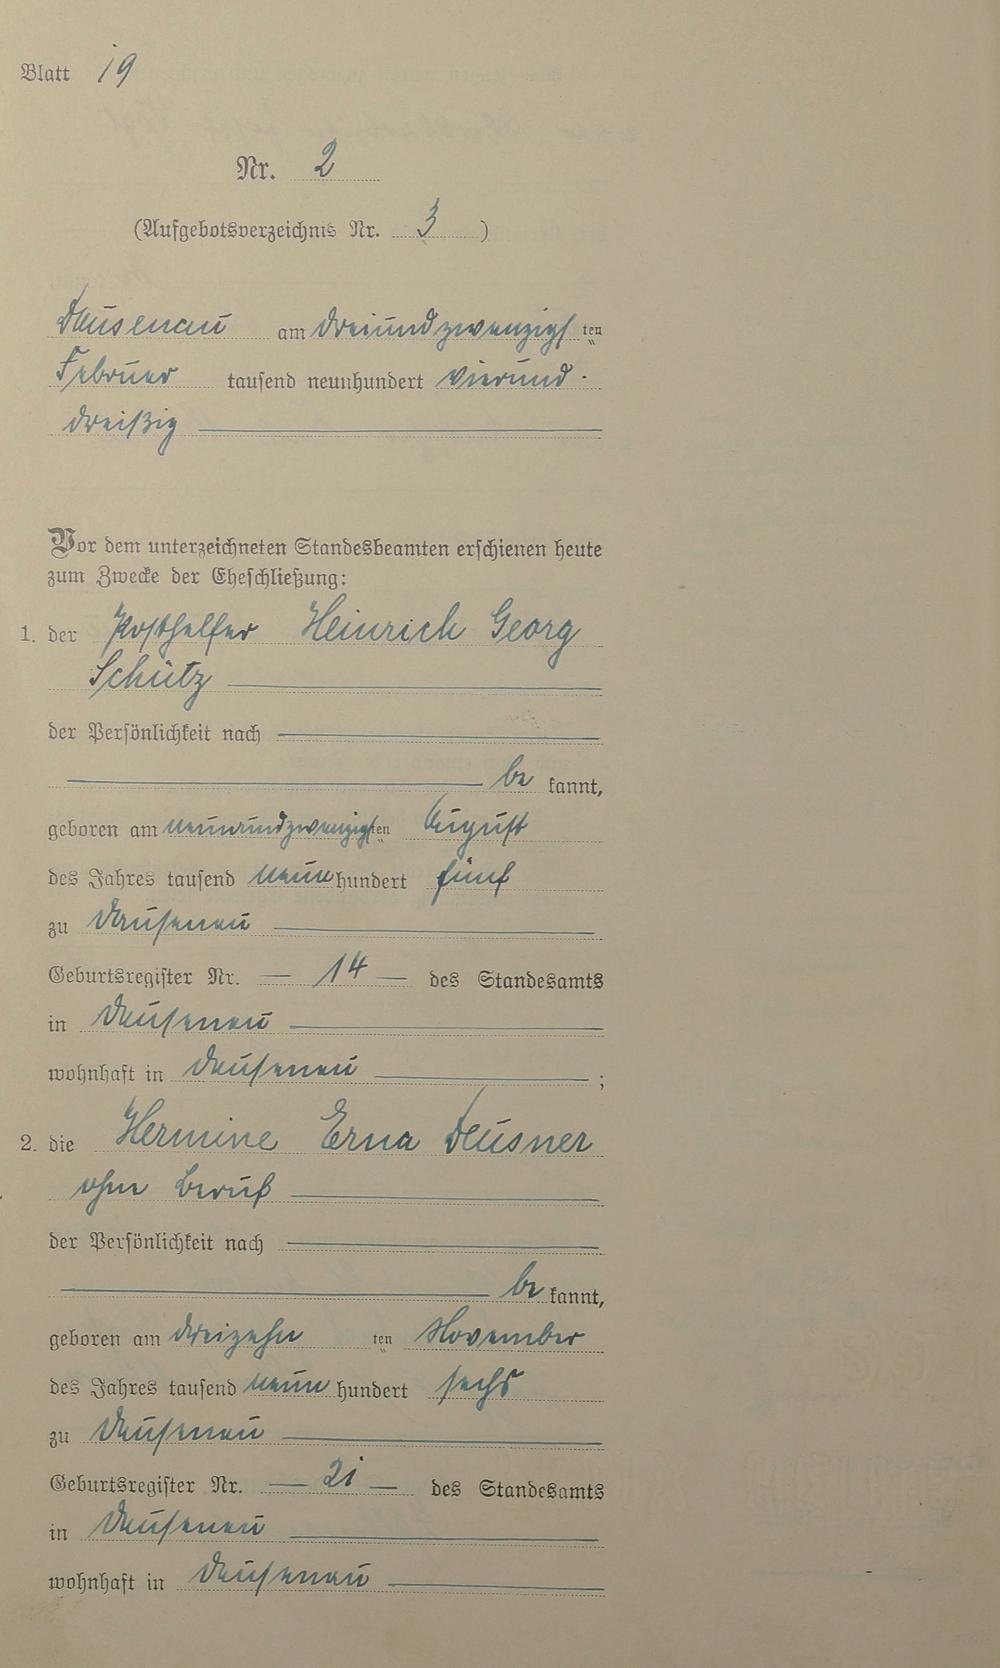 Blatt 19
Nr. 2
(Aufgebotsverzeichnis Nr. 3)
Dausenau am dreiundzwanzigsten
Februar tausend neunhundert vierund-
dreißig
Vor dem unterzeichneten Standesbeamten erschienen heute
zum Zwecke der Eheschließung:
1. der Posthelfer Heinrich Georg
Schütz
der Persönlichkeit nach
be kannt,
geboren am neunundzwanzigsten August
des Jahres tausend neun hundert fünf
zu Dausenau
Geburtsregister Nr. — 14 — des Standesamts
in Dausenau
wohnhaft in Dausenau ;
2. die Hermine Erna Deusner
ohne Beruf
der Persönlichkeit nach
be kannt,
geboren am dreizehn ten November
des Jahres tausend neun hundert sechs
zu Dausenau
Geburtsregister Nr. — 21 — des Standesamts
in Dausenau
wohnhaft in Dausenau